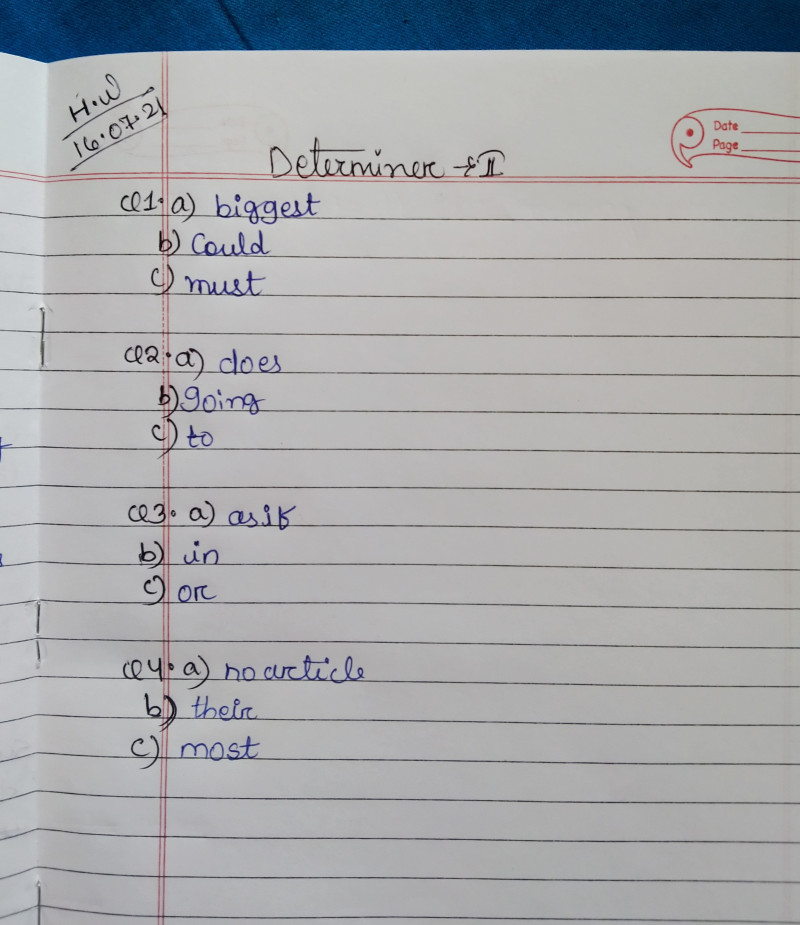 H.W
16.07.21
Date
Page
Determiner → II
Q1. a) biggest
b) Could
c) must
Q2. a) does
b) going
c) to
Q3. a) as if
b) in
c) or
Q4. a) no article
b) their
c) most